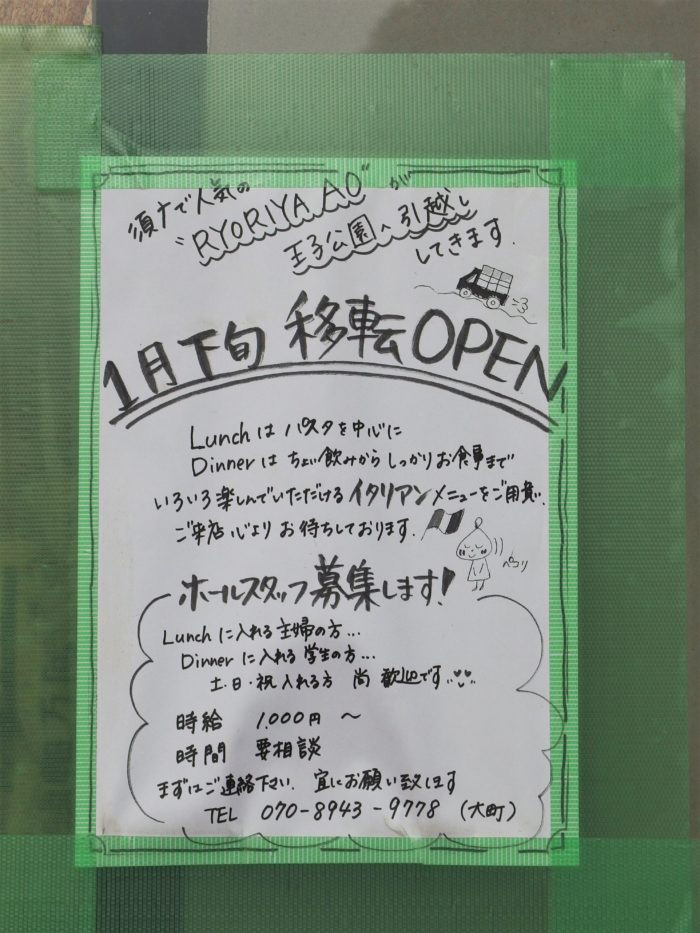 須ナで人気の
"RYORIYA AO"が
王子公園へ引越し
してきます.
1月下旬 移転OPEN
Lunchは パスタを中心に
Dinnerは ちょい飲みから しっかりお食事まで
いろいろ楽しんでいただける イタリアンメニューをご用意.
ご来店 心より お待ちしております.
ペコリ
ホールスタッフ募集します!
Lunchに入れる主婦の方...
Dinnerに入れる学生の方...
土・日・祝 入れる方 尚 歓迎です
時給 1,000円 〜
時間 要相談
まずはご連絡下さい. 宜しくお願い致します
TEL 070-8943-9778 (大町)